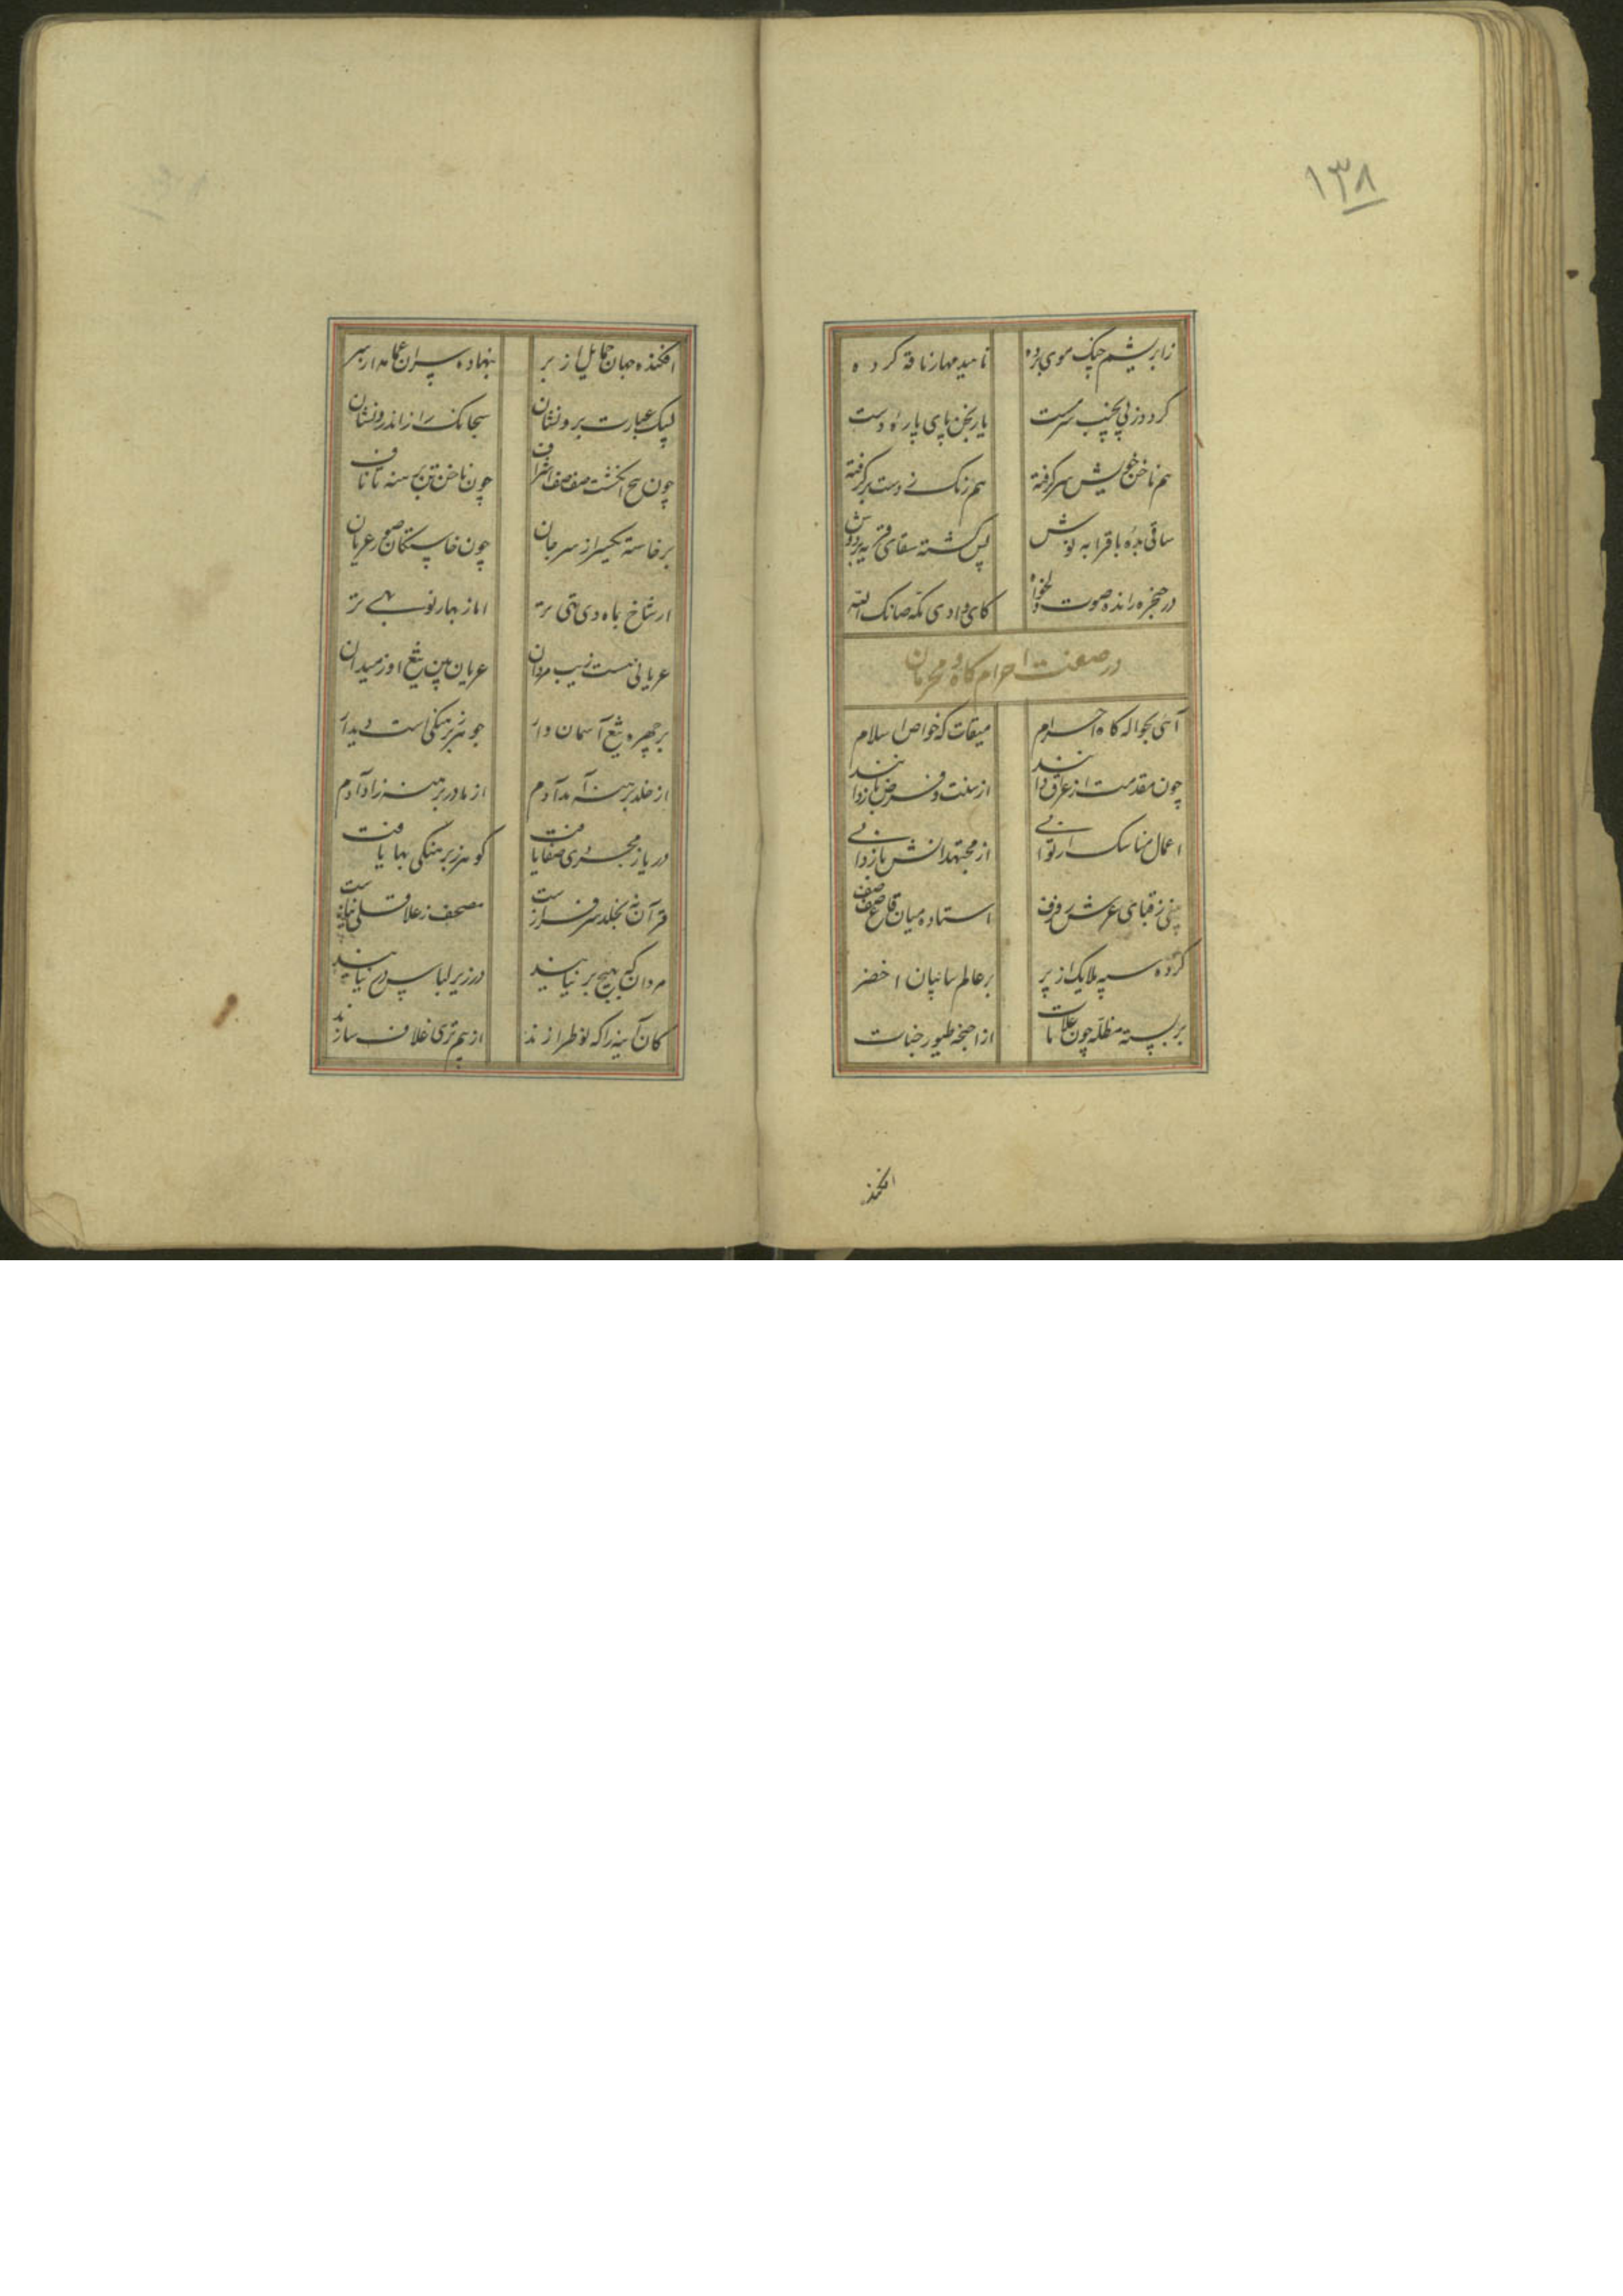 ۱۳۸
زابریشم چنک موی برده ناهید مهار ناقه کرده
کردد زپی سرمست یارنجن پای پاره دست
هم ناخن خویش سر کرفته هم زنک نی دست بر کرفته
ساقی بده باقرابه نوش پس کشته سقای
در حنجره رانده صوت دلخواه کای وادی مکه صانک الله
در صفت احرام کاه و محرمان
آئی بحواله کاه احرام میقات که خواص اسلام
چون مقدمت از عراق دانند از سنت و فرض بازدانند
اعمال مناسک ار توانی از مجتهدانش بازدانی
بینی ز قبای عرش رفرف استاده میان قاع صفصف
کرده سپه ملایک از پر بر عالم سائبان اخضر
بربسته مظله چون علامات از اجنحه طیور جنات
افکنده
افکنده جهان حمایل از بر بنهاده سران عمامه از سر
لبیک عبارت برونشان سبحانک راز اندرونشان
چون پنج انکشت صف صف اشراف چون ناخن تن برهنه تا ناف
برخاسته یکسر از سر جان چون خاستکان صور عریان
ار شاخ بماه دی تهی تر اما ز بهار نو بهی تر
عریانی هست زیب مردان عریان بین تیغ روز میدان
بر چهره تیغ آسمان وار جوهر ز برهنکی است دیدار
از خلد برهنه آمد آدم از مادر برهنه زاد آدم
دریا ز مجردی صفا یافت کوهر ز برهنکی بها یافت
قرآن نه بجلد سرفراز است مصحف ز علاقه بی نیاز است
مردان که بهیچ بر نیایند در زیر لباس درع نیایند
کان آینه را که نو طرازند از هم تری غلاف سازند